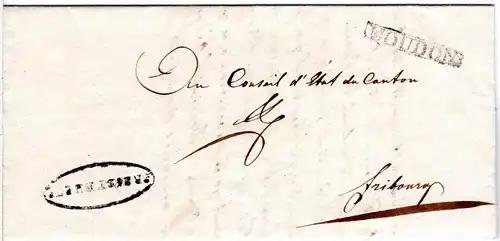 MOUDON
Au Conseil d'Etat du Canton
fribourg